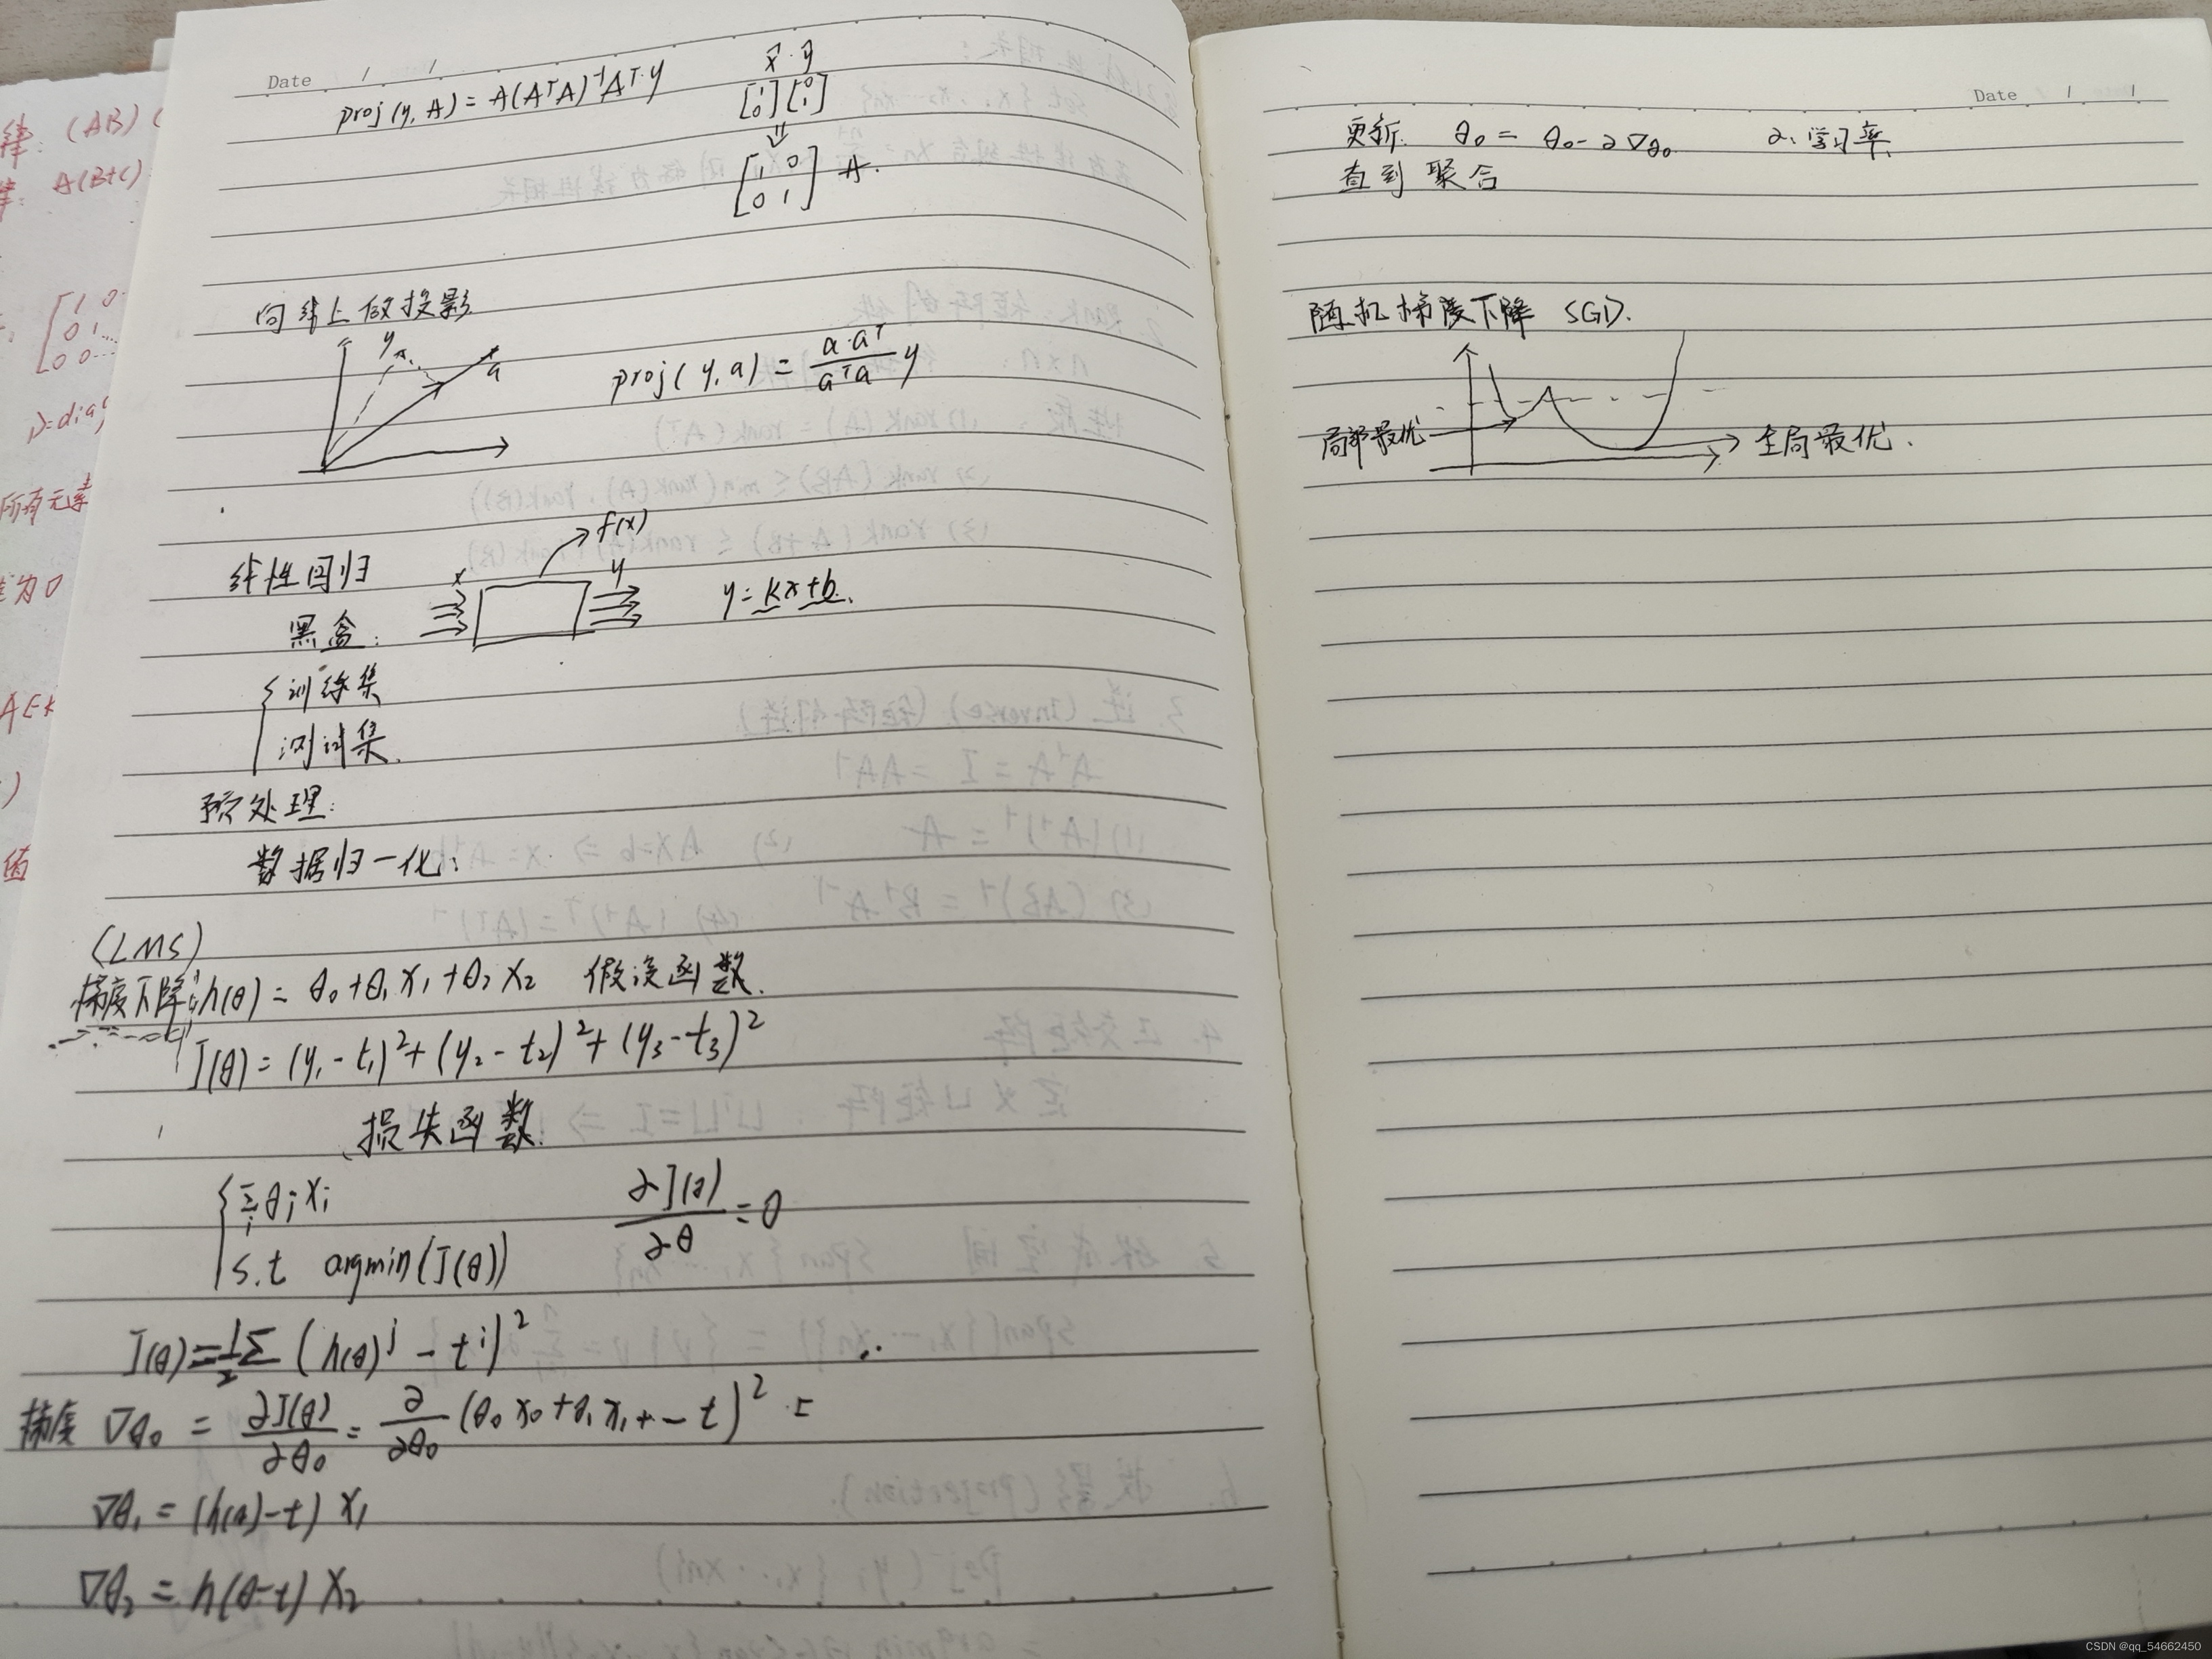 Date / /
proj(y, A) = A(AᵀA)⁻¹Aᵀ·y
x⃗ · y⃗
[1 0] [0 1]
⇓
[1 0
0 1] A.
向线上做投影
y a
proj(y, a) = a·aᵀ / aᵀa y
线性回归
f(x)
黑盒: x y y = kx+b.
训练集
测试集.
预处理:
数据归一化:
(LMS)
梯度下降: h(θ) = θ₀+θ₁x₁+θ₂x₂ 假设函数.
J(θ) = (y₁-t₁)²+(y₂-t₂)²+(y₃-t₃)²
损失函数.
{ Σᵢ θᵢxᵢ ∂J(θ)/∂θ = 0
s.t argmin(J(θ))
J(θ) = 1/2 Σ (h(θ)ʲ - tⁱ)²
梯度 ∇θ₀ = ∂J(θ)/∂θ₀ = ∂/∂θ₀ (θ₀x₀+θ₁x₁+-t)² =
∇θ₁ = (h(θ)-t) x₁
∇θ₂ = h(θ-t) x₂
Date / /
更新: θ₀ = θ₀-∂∇θ₀ ∂: 学习率.
直到聚合
随机梯度下降 SGD.
局部最优 全局最优.
律: (AB)(
律: A(B+C)
[1 0
0 1...
0 0...
D=diag
所有元素
为0
A∈R
值
CSDN @qq_54662450